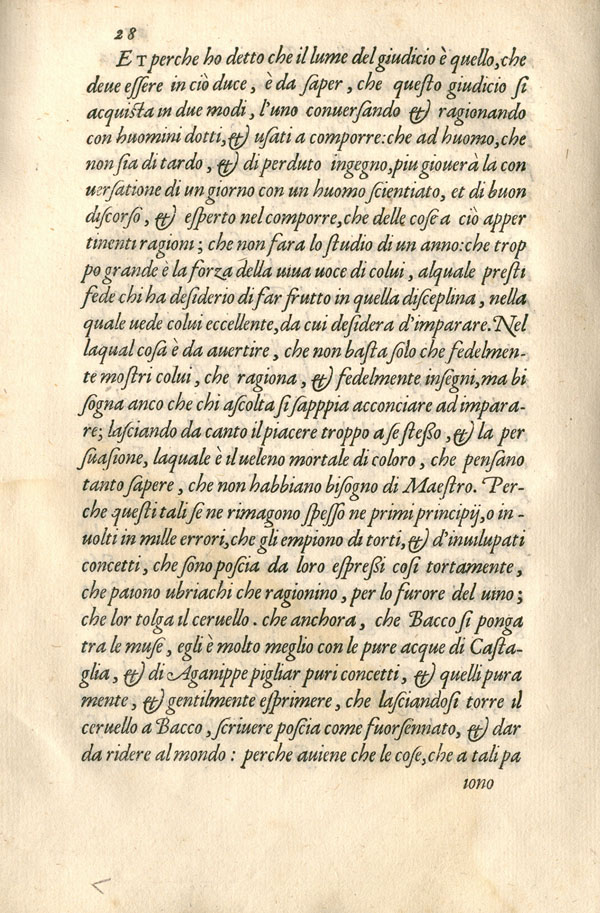 28
ET perche ho detto che il lume del giudicio è quello, che
deue eſſere in ciò duce, è da ſaper, che queſto giudicio ſi
acquiſta in due modi, l'uno conuerſando & ragionando
con huomini dotti, & uſati a comporre: che ad huomo, che
non ſia di tardo, & di perduto ingegno, piu giouerà la con
uerſatione di un giorno con un huomo ſcientiato, et di buon
diſcorſo, & eſperto nel comporre, che delle coſe a ciò apper
tinenti ragioni; che non fara lo ſtudio di un anno: che trop
po grande è la forza della uiua uoce di colui, alquale preſti
fede chi ha deſiderio di far frutto in quella diſceplina, nella
quale uede colui eccellente, da cui deſidera d'imparare. Nel
laqual coſa è da auertire, che non baſta ſolo che fedelmen-
te moſtri colui, che ragiona, & fedelmente inſegni, ma bi
ſogna anco che chi aſcolta ſi ſapppia acconciare ad impara-
re; laſciando da canto il piacere troppo a ſe ſteſſo, & la per
ſuaſione, laquale è il ueleno mortale di coloro, che penſano
tanto ſapere, che non habbiano biſogno di Maeſtro. Per-
che queſti tali ſe ne rimagono ſpeſſo ne primi principij, o in-
uolti in mille errori, che gli empiono di torti, & d'inuilupati
concetti, che ſono poſcia da loro eſpreſſi coſi tortamente,
che paiono ubriachi che ragionino, per lo furore del uino;
che lor tolga il ceruello. che anchora, che Bacco ſi ponga
tra le muſe, egli è molto meglio con le pure acque di Caſta-
glia, & di Aganippe pigliar puri concetti, & quelli pura
mente, & gentilmente eſprimere, che laſciandoſi torre il
ceruello a Bacco, ſcriuere poſcia come fuorſennato, & dar
da ridere al mondo: perche auiene che le coſe, che a tali pa
iono